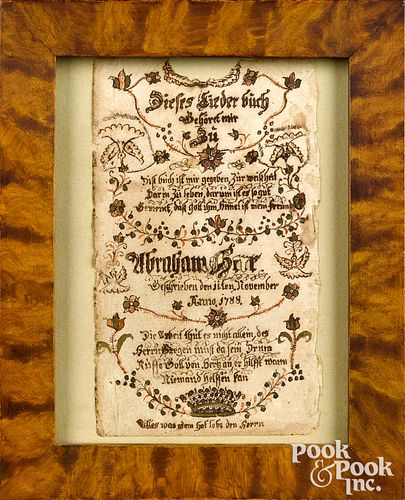 Dieses Lieder buch
Gehöret mir
Zu
Dis buch ist mir gegeben Zur weisheit
Darin zu leben, darum ist es so gut
Gemeint, daß Gott im Himel ist mein freund
Abraham Herr
Geschrieben den 11ten November
Anno, 1788.
Die Arbeit thut es nicht allein, des
Herrn Segen muß da sein, Drum
Ruffe Gott von Hertzen er hilfft wann
Niemand helffen kan
Alles was odem hat lobe den Herrn
POOK
& POOK
INC.